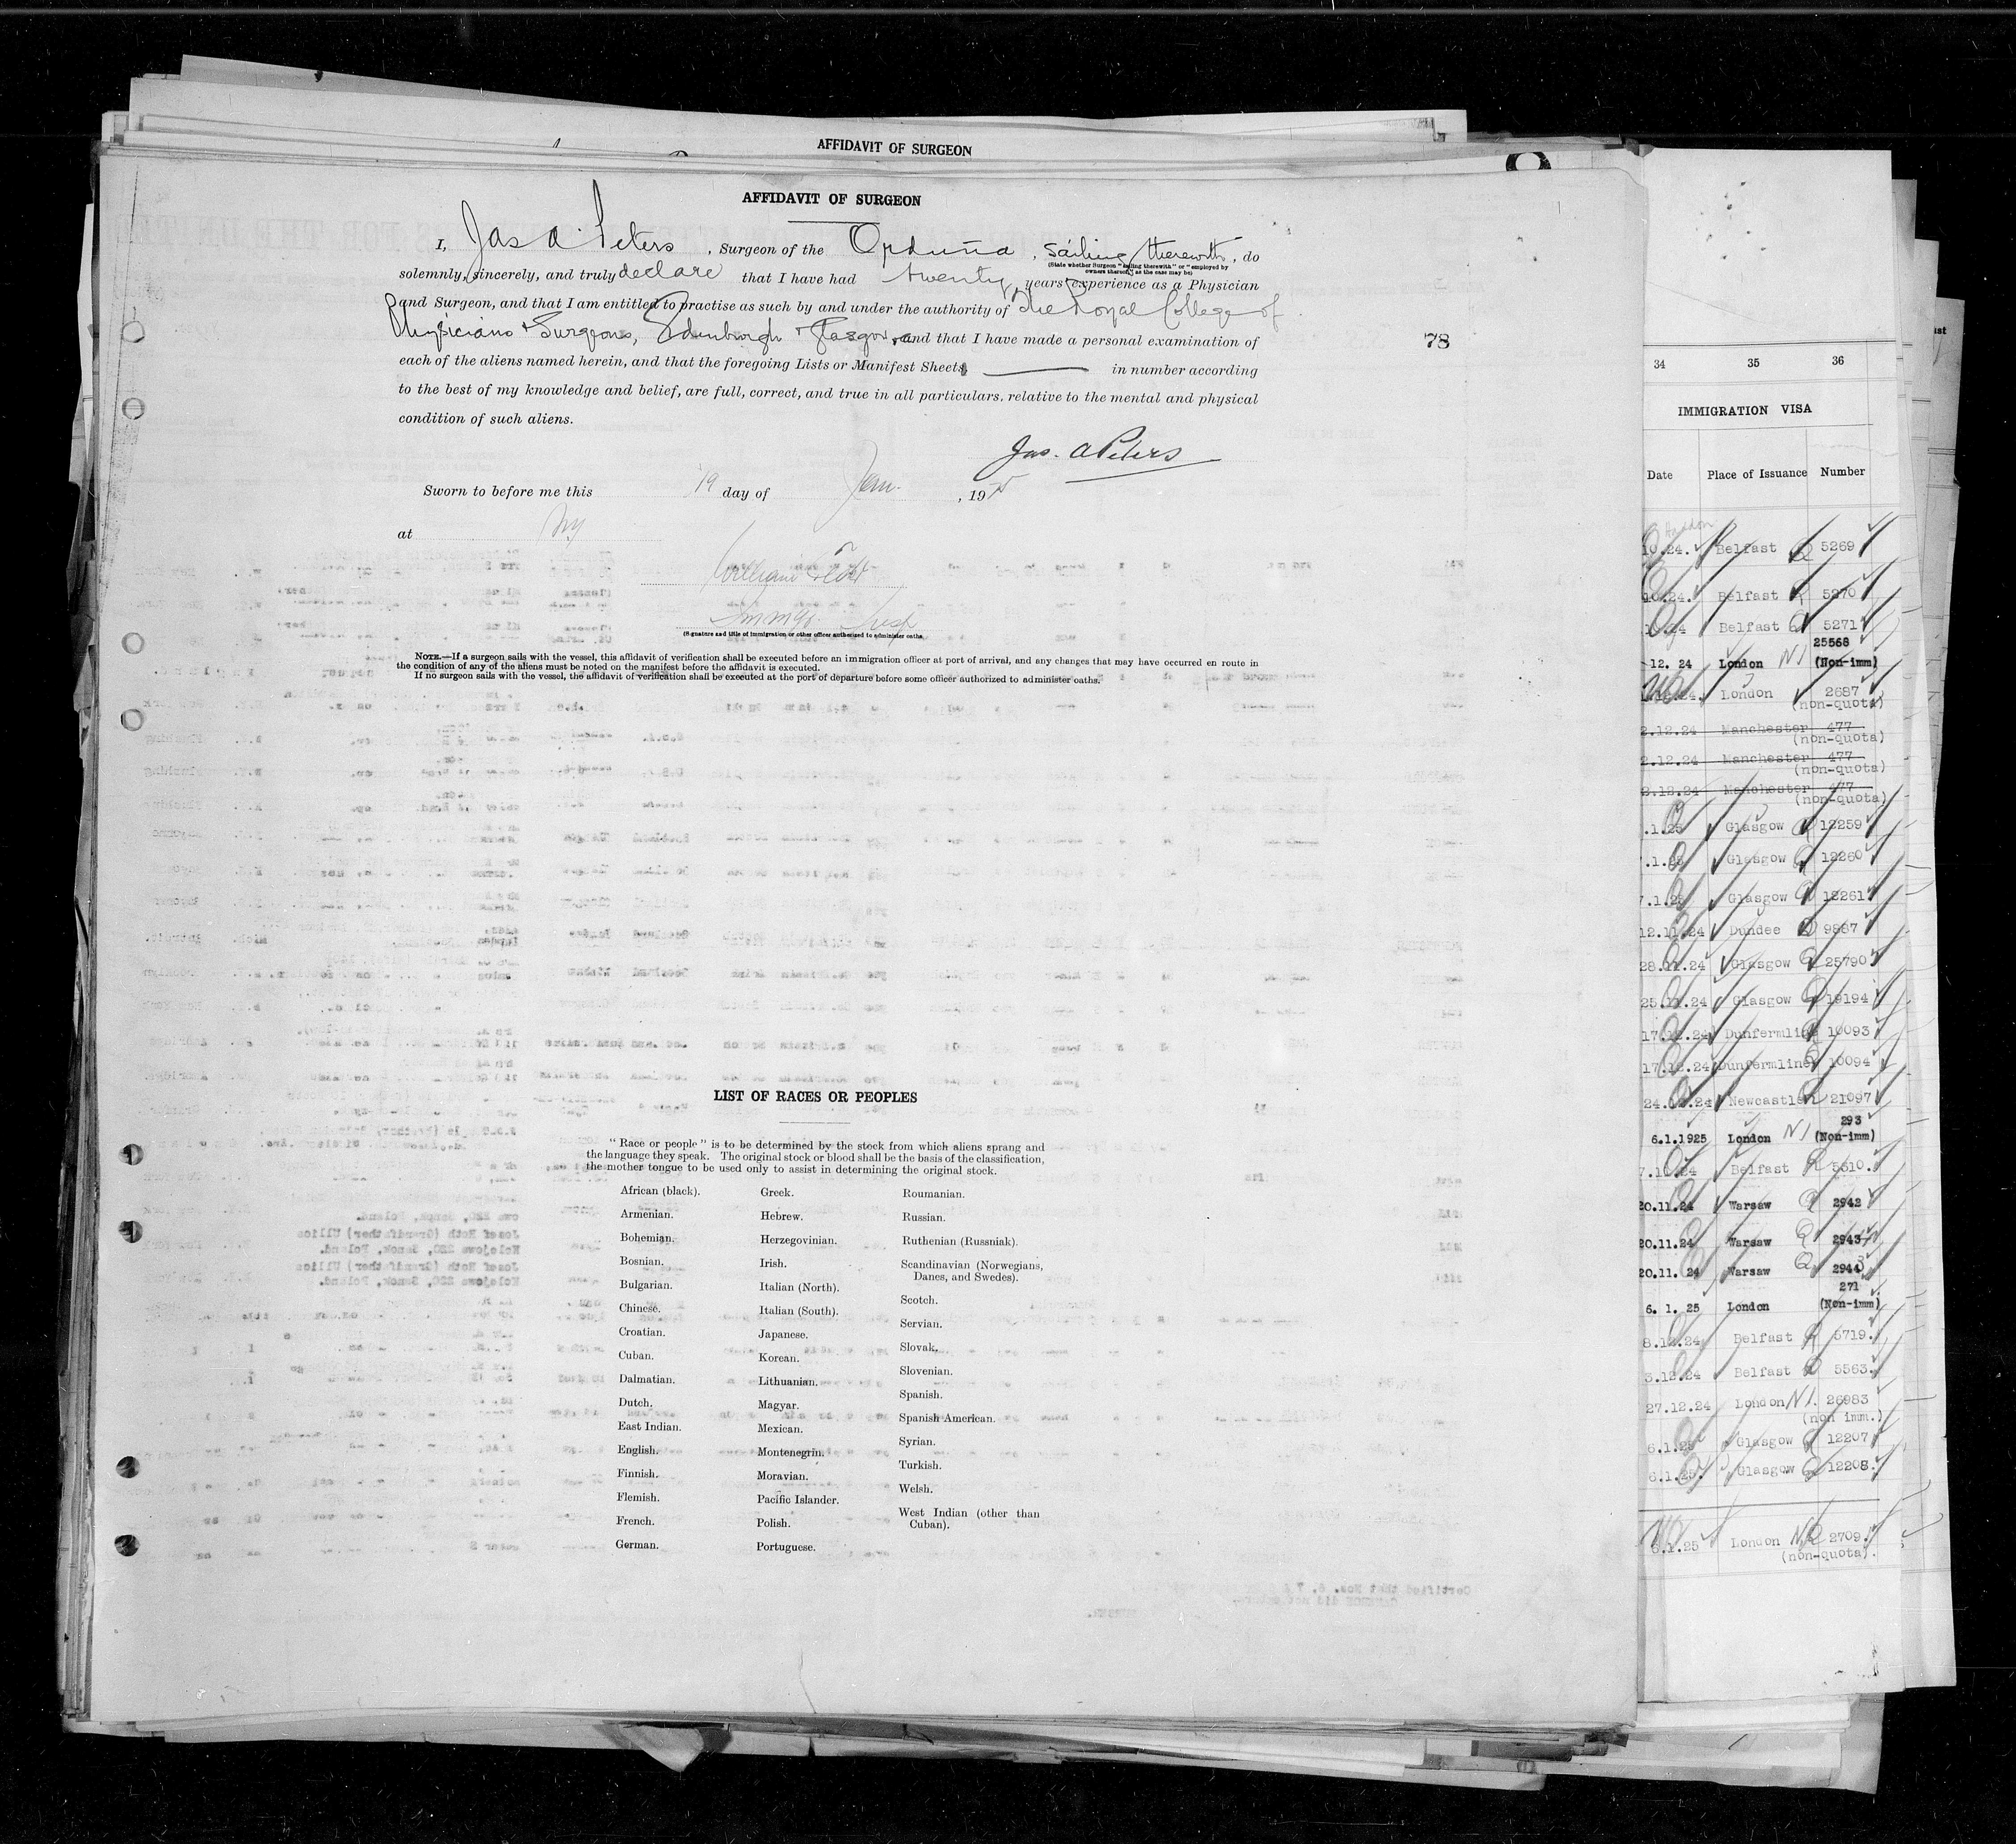 AFFIDAVIT OF SURGEON
AFFIDAVIT OF SURGEON
I, Jas A Peters, Surgeon of the Orduña, sailing therewith, do
(State whether Surgeon "sailing therewith" or "employed by
owners thereof," as the case may be)
solemnly, sincerely, and truly declare that I have had twenty years experience as a Physician
and Surgeon, and that I am entitled to practise as such by and under the authority of the Royal College of
Physicians & Surgeons, Edinburgh & Glasgow, and that I have made a personal examination of
each of the aliens named herein, and that the foregoing Lists or Manifest Sheets, in number according
to the best of my knowledge and belief, are full, correct, and true in all particulars, relative to the mental and physical
condition of such aliens.
Jas. A Peters
Sworn to before me this 19 day of Jan., 19
at NY
William
Immgr. Insp
(Signature and title of immigration or other officer authorized to administer oaths
NOTE.—If a surgeon sails with the vessel, this affidavit of verification shall be executed before an immigration officer at port of arrival, and any changes that may have occurred en route in
the condition of any of the aliens must be noted on the manifest before the affidavit is executed.
If no surgeon sails with the vessel, the affidavit of verification shall be executed at the port of departure before some officer authorized to administer oaths.
78
LIST OF RACES OR PEOPLES
"Race or people" is to be determined by the stock from which aliens sprang and
the language they speak. The original stock or blood shall be the basis of the classification,
the mother tongue to be used only to assist in determining the original stock.
African (black).
Armenian.
Bohemian.
Bosnian.
Bulgarian.
Chinese.
Croatian.
Cuban.
Dalmatian.
Dutch.
East Indian.
English.
Finnish.
Flemish.
French.
German.
Greek.
Hebrew.
Herzegovinian.
Irish.
Italian (North).
Italian (South).
Japanese.
Korean.
Lithuanian.
Magyar.
Mexican.
Montenegrin.
Moravian.
Pacific Islander.
Polish.
Portuguese.
Roumanian.
Russian.
Ruthenian (Russniak).
Scandinavian (Norwegians,
Danes, and Swedes).
Scotch.
Servian.
Slovak.
Slovenian.
Spanish.
Spanish American.
Syrian.
Turkish.
Welsh.
West Indian (other than
Cuban).
34 35 36
IMMIGRATION VISA
Date Place of Issuance Number
10.24. Belfast 5269
10.24. Belfast 5270
24 Belfast 5271
25568
12. 24 London NI (Non-imm)
24. London 2687
(non-quota)
2.12.24 Manchester 477
(non-quota)
2.12.24 Manchester 477
(non-quota)
2.12.24 Manchester 477
(non-quota)
.1.25 Glasgow 12259
.1.25 Glasgow 12260
7.1.25 Glasgow 12261
12.11.24 Dundee 9887
28.11.24 Glasgow 25790
25.11.24 Glasgow 19194
17.12.24 Dunfermline 10093
17.12.24 Dunfermline 10094
24.12.24 Newcastle 21097
293
6.1.1925 London NI (Non-imm)
7.11.24 Belfast 5510.
20.11.24 Warsaw Q 2942
20.11.24 Warsaw Q 2943
20.11. 24 Warsaw Q 2944
271
6. 1. 25 London (Non-imm)
8.12.24 Belfast 5719.
3.12.24 Belfast 5563.
27.12.24 London NI. 26983
(non imm.)
6.1.25 Glasgow 12207
6.1.25. Glasgow 12208.
6.1.25 London NQ 2709.
(non-quota).